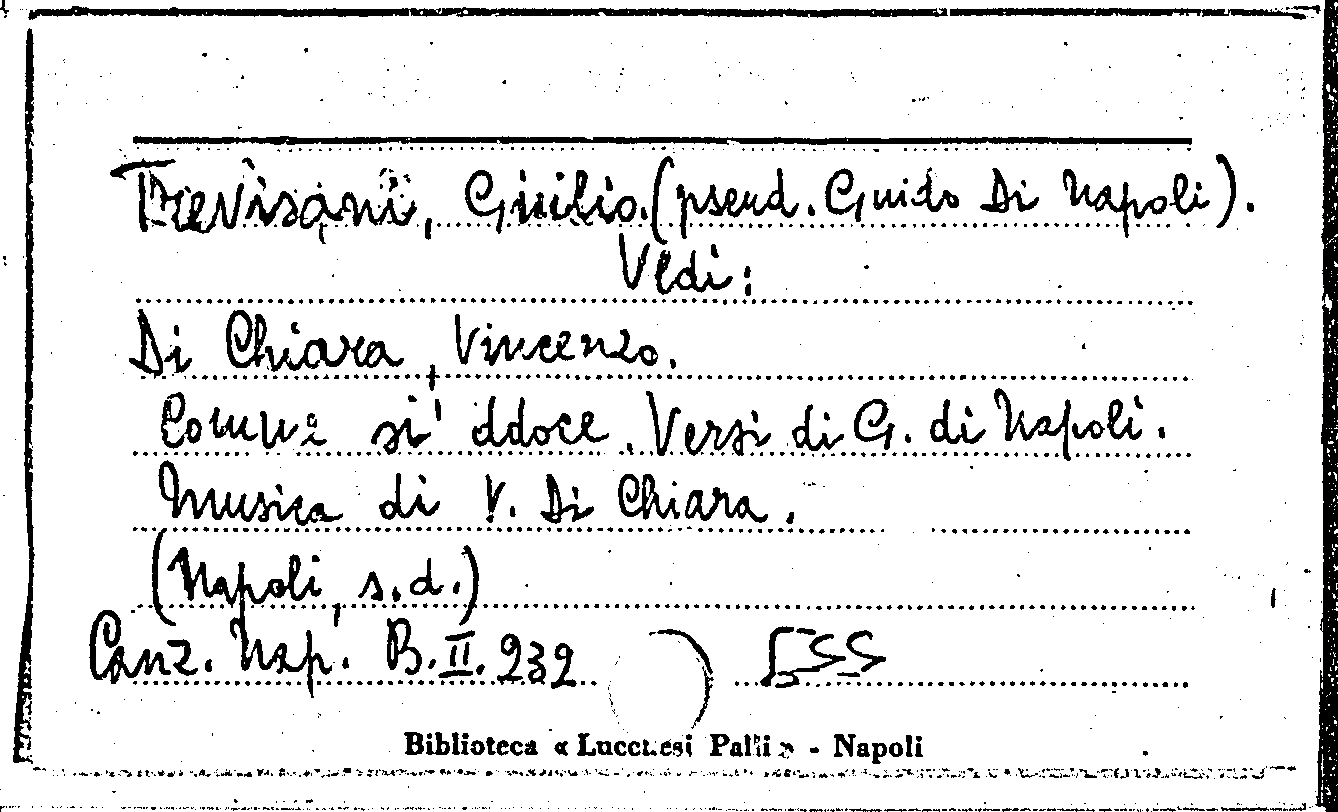 Trevisani, Giulio. (pseud. Guido Di Napoli).
Vedi:
Di Chiara, Vincenzo.
Comme si' ddoce. Versi di G. di Napoli.
Musica di V. Di Chiara.
(Napoli, s.d.)
Canz. Nap. B.II.232
Biblioteca « Lucchesi Palli » - Napoli